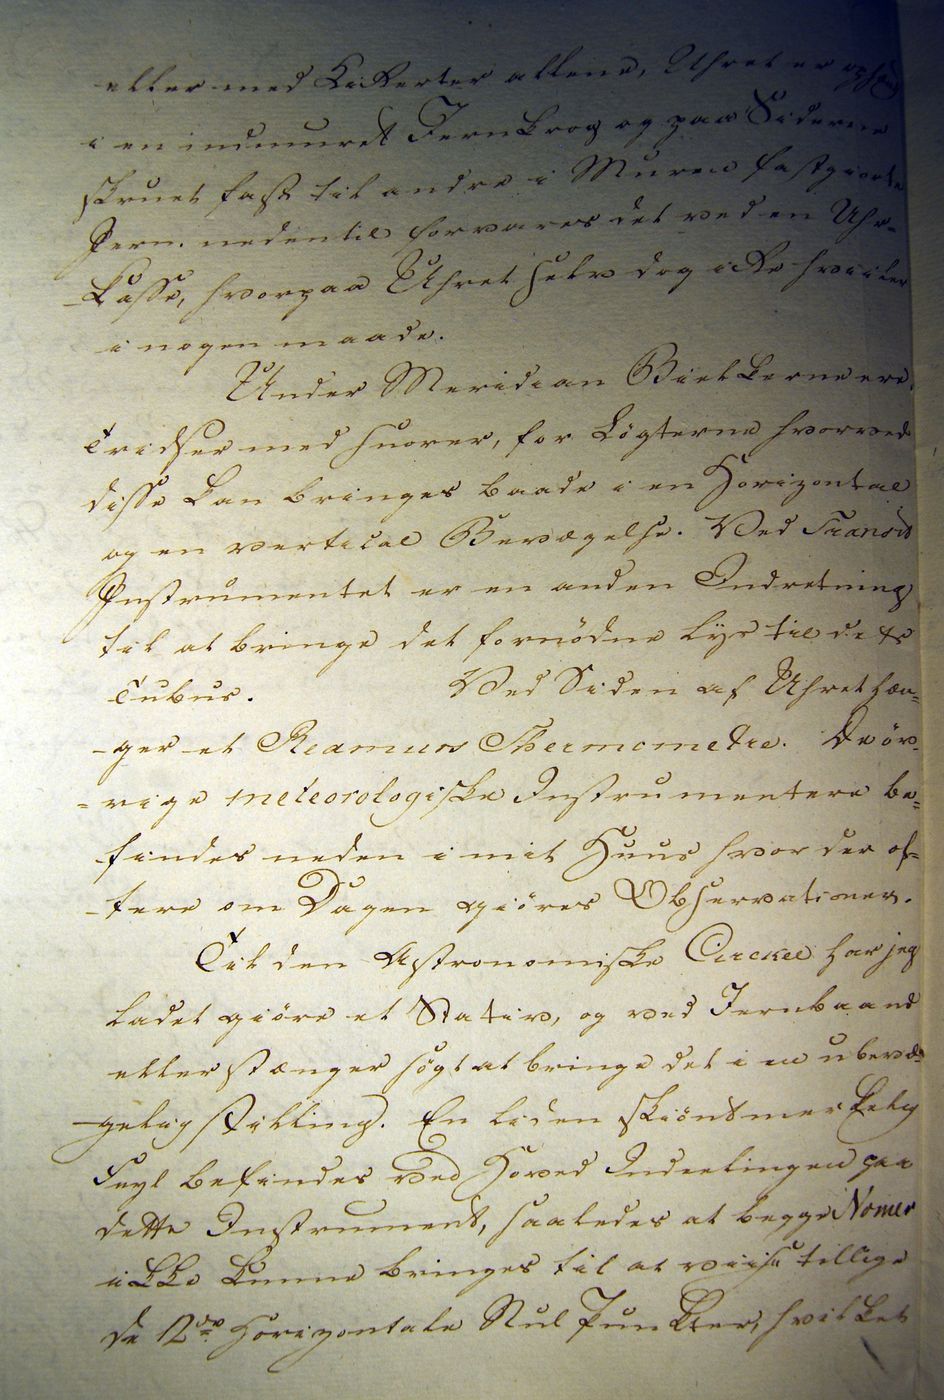 eller med Kikkerter allene, Uhret er ophengt
i en indmuret Jernkrog og paa Siderne
skruet fast til andre i Muren fastgiorte
Jern. nedentil forvares det ved en Uhr-
-Kasse, hvorpaa Uhret selv dog icke hviiler
i nogen maade.
Under Meridian Bielkerne ere
Tridser med Snorer, for Løgterne hvorved
disse kan bringes baade i en Horizontal
og en vertical Bevægelse. Ved Transit
Instrumentet er en anden Indretning
til at bringe det fornødne lys til dets
Tubus. Ved Siden af Uhret hæn=
-ger et Reamurs Thermometre. De öv=
=rige meteorologiske Instrumentere be=
findes neden i mit Huus hvor der of=
-tere om Dagen giöres Observationer.
Til den Astronomiske Circkel har jeg
ladet giöre et Stativ, og ved Jernbaand
eller stænger søgt at bringe det i en ubevæ=
-gelig stilling. En liden skiöndt merkelig
Feyl befindes ved Hoved Indelingen paa
dette Instrument, saaledes at begge Nonier
ikke kunne bringes til at viise tillige
de 2de Horizontale Nul Punkter, hvilket